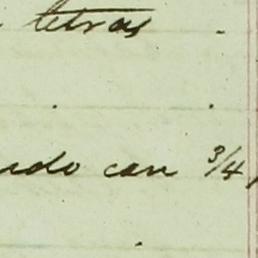 letras
ado con 3/4,